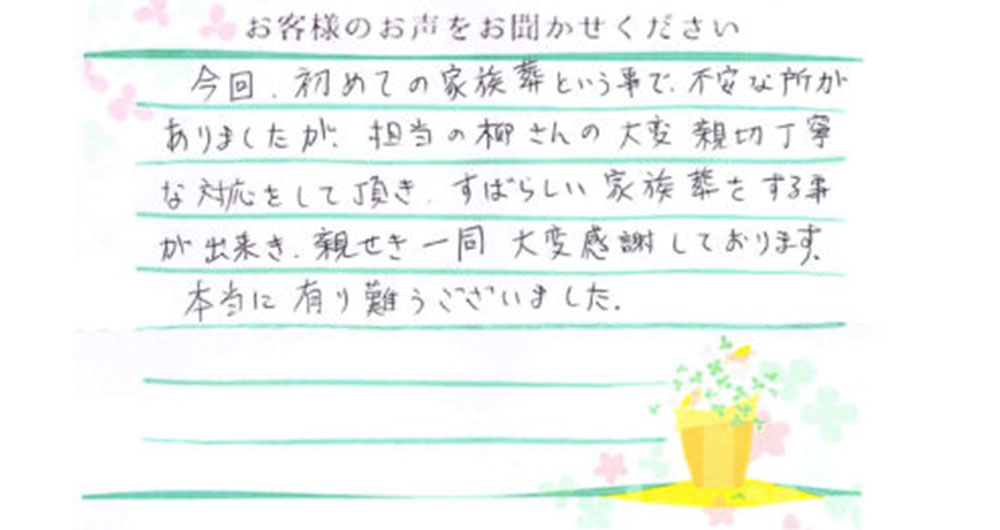 お客様のお声をお聞かせください
今回、初めての家族葬という事で、不安な所が
ありましたが、担当の柳さんの大変親切丁寧
な対応をして頂き、すばらしい家族葬をする事
が出来き、親せき一同大変感謝しております。
本当に有り難うございました。